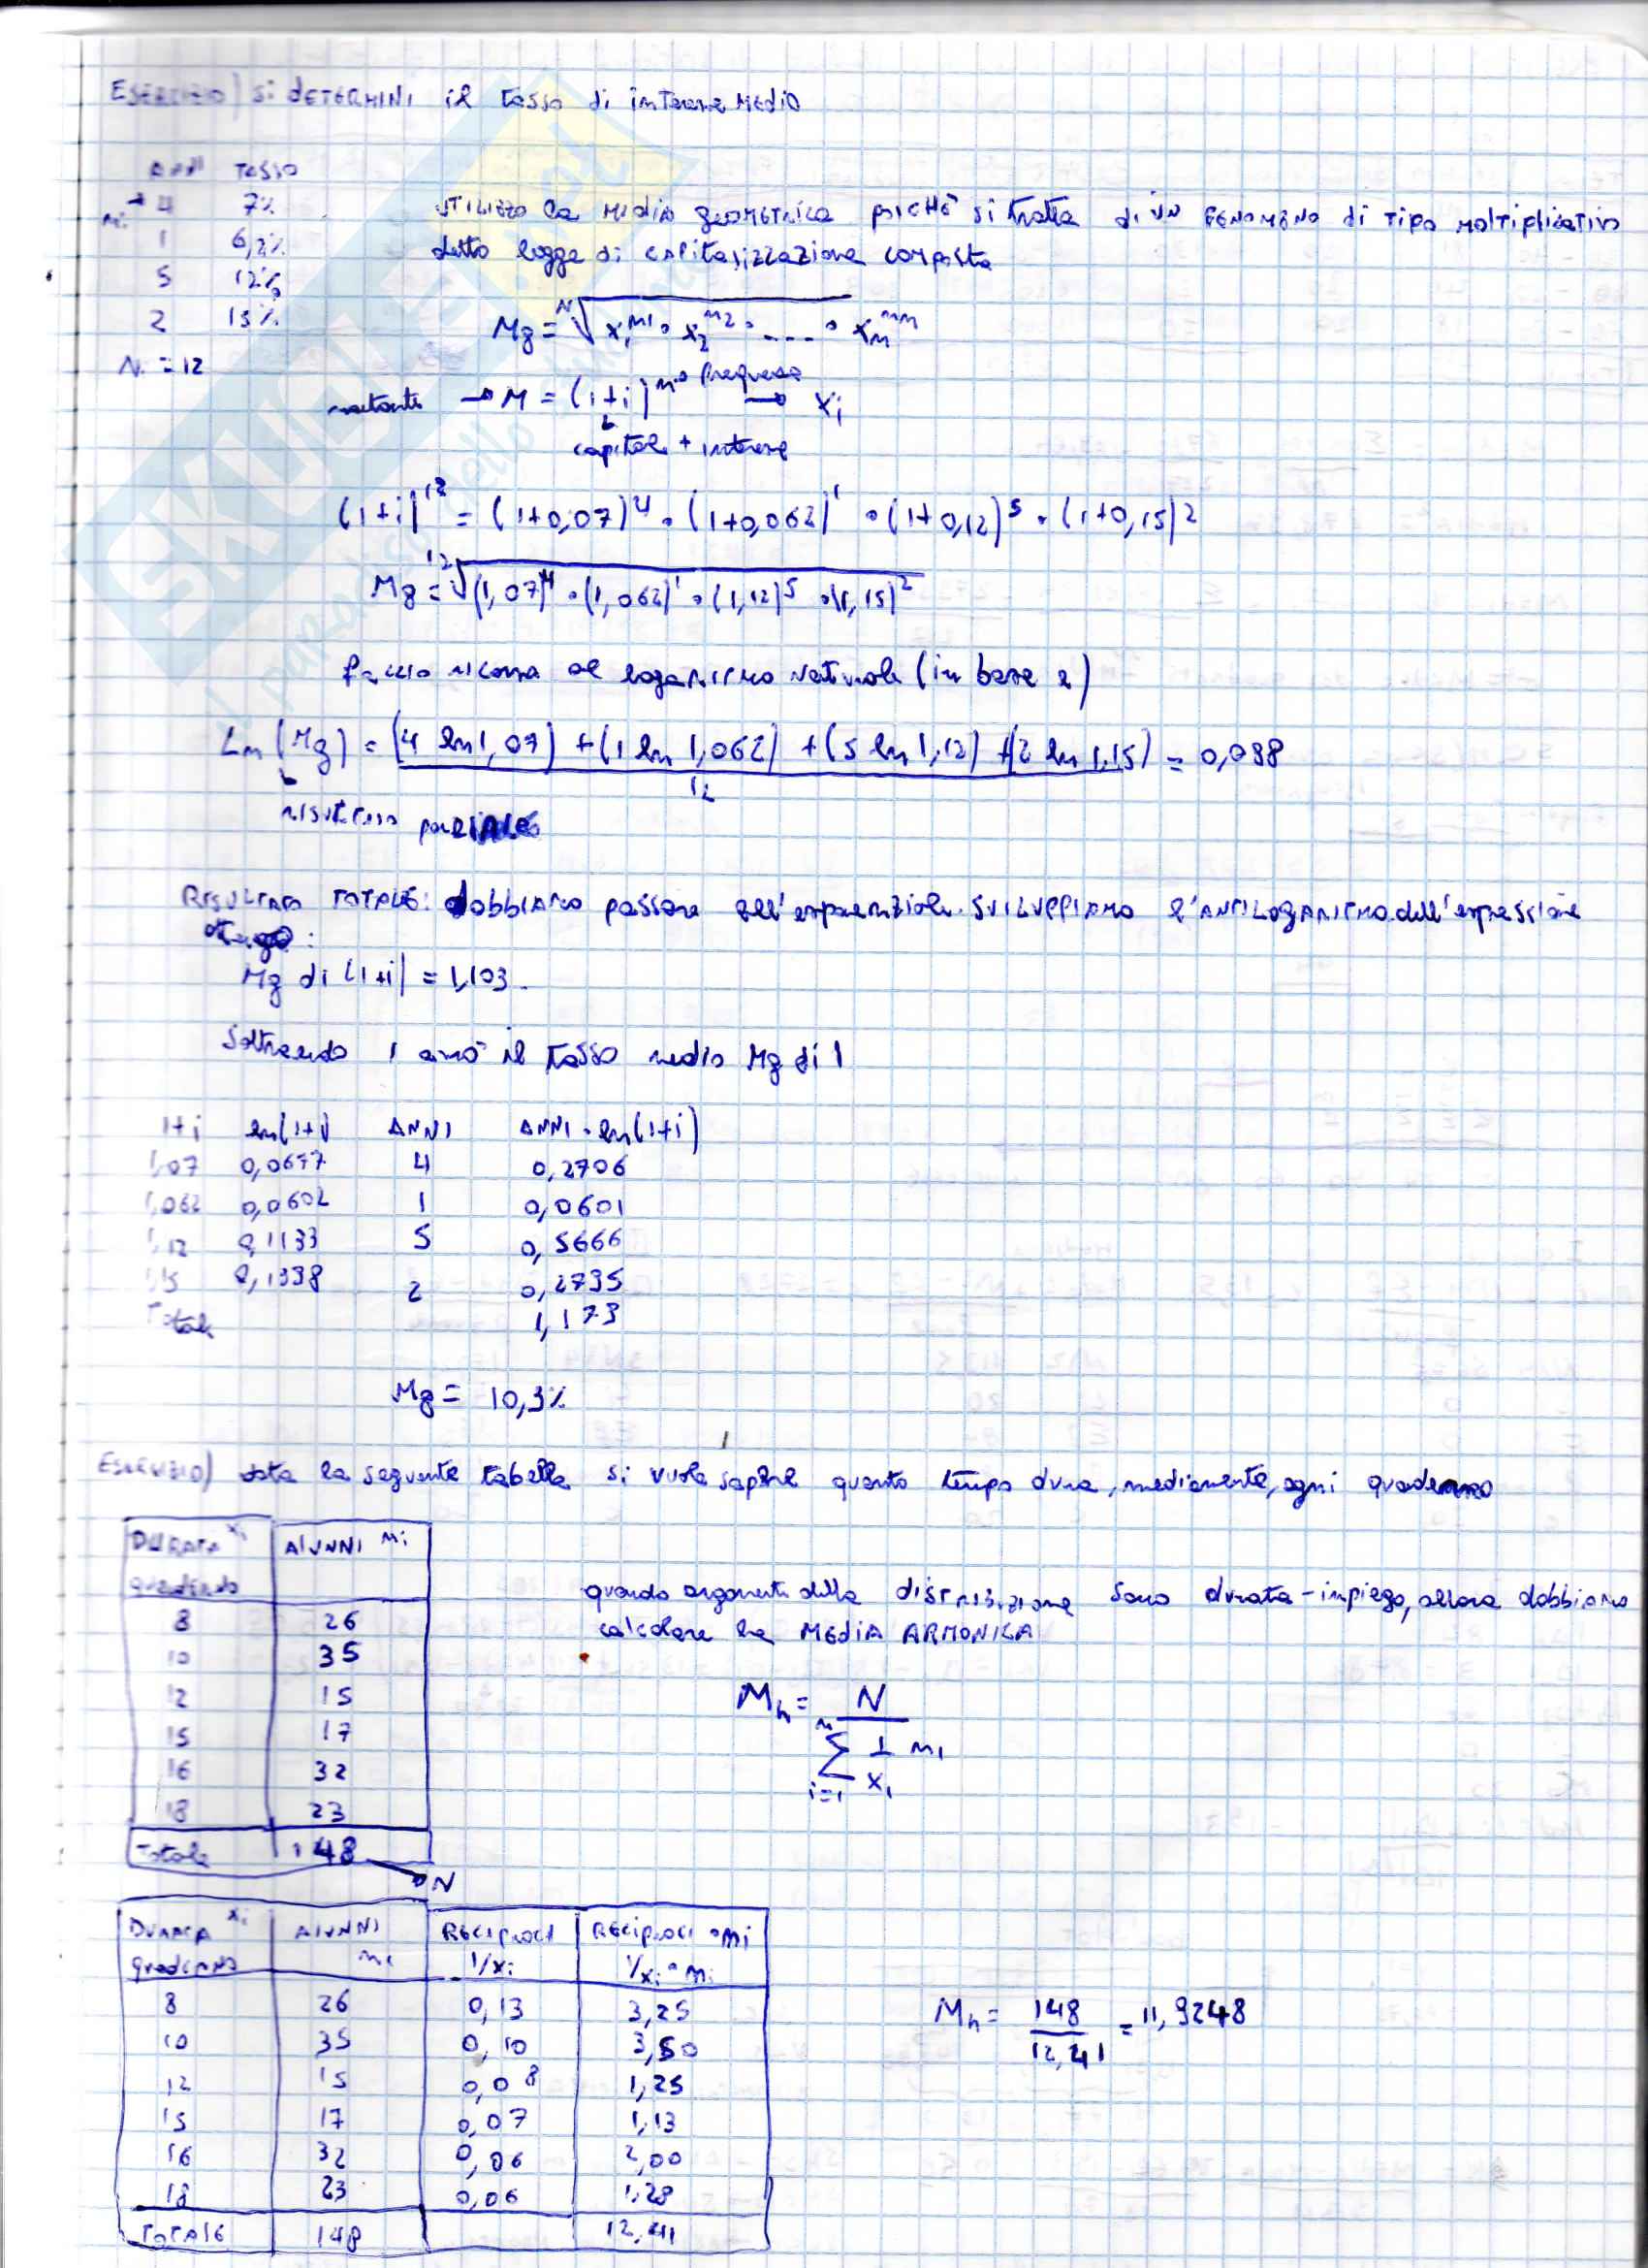 ESERCIZIO) Si DETERMINI il tasso di interesse MEDIO
ANNI TASSO
ni → 4 7%
1 6,2%
5 12%
2 15%
N. = 12
UTILIZZO la MEDIA GEOMETRICA poiCHÈ si tratta di UN FENOMENO di TIPO moltiplicativo
detto legge di CAPITALIZZAZIONE composta
Mg = N√x1^n1 · x2^n2 · .... · xn^nn
montante → M = (1+i)^n → frequenza → xi
capitale + interesse
(1+i)^12 = (1+0,07)^4 · (1+0,062)^1 · (1+0,12)^5 · (1+0,15)^2
Mg = 12√(1,07)^4 · (1,062)^1 · (1,12)^5 · (1,15)^2
faccio ricorso al logaritmo naturale (in base e)
Ln (Mg) = (4 ln 1,07) + (1 ln 1,062) + (5 ln 1,12) + (2 ln 1,15) = 0,098
12
risultato parziale
RISULTATO TOTALE: dobbiamo passare all'esponenziale. SVILUPPIAMO l'ANTILOGARITMO dell'espressione
Mg di (1+i) = 1,103.
Sottraendo 1 avrò il tasso medio Mg di 1
1+i ln(1+i) ANNI ANNI · ln(1+i)
1,07 0,0677 4 0,2706
1,062 0,0602 1 0,0601
1,12 0,1133 5 0,5666
1,15 0,1398 2 0,2795
Totale 1,173
Mg = 10,3%
ESERCIZIO) data la seguente tabella si vuole sapere quanto tempo dura, mediamente, ogni quaderno
DURATA xi ALUNNI ni
quaderno
8 26
10 35
12 15
15 17
16 32
18 23
Totale 148 → N
quando argomenti della distribuzione sono durata - impiego, allora dobbiamo
calcolare la MEDIA ARMONICA
Mh = N
n ∑ i=1 1/xi ni
DURATA xi ALUNNI RECIPROCI RECIPROCI · ni
quaderno ni 1/xi 1/xi · ni
8 26 0,13 3,25
10 35 0,10 3,50
12 15 0,08 1,25
15 17 0,07 1,13
16 32 0,06 2,00
18 23 0,06 1,28
TOTALE 148 12,41
Mh = 148 = 11,9248
12,41